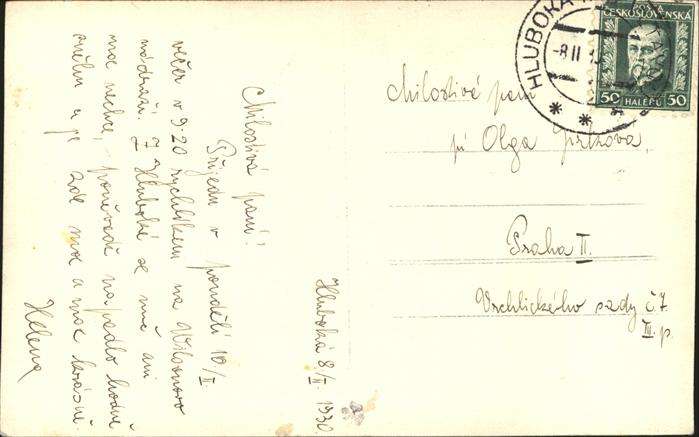 Hluboká 8/II 1930.
Milostivá paní!
Přijedu v pondělí 10/II
večer v 9·20 rychlíkem na Wilsonovo
nádraží. Z Hluboké se mně ani
moc nechce, poněvadž napadlo hodně
sněhu a je zde moc a moc krásně.
Helena
Milostivá paní
pí Olga
Praha II.
Vrchlického sady č. 7
III. p.
HLUBOKÁ
-8 II
POŠTA
ČESKOSLOVENSKÁ
50 HALÉŘŮ 50